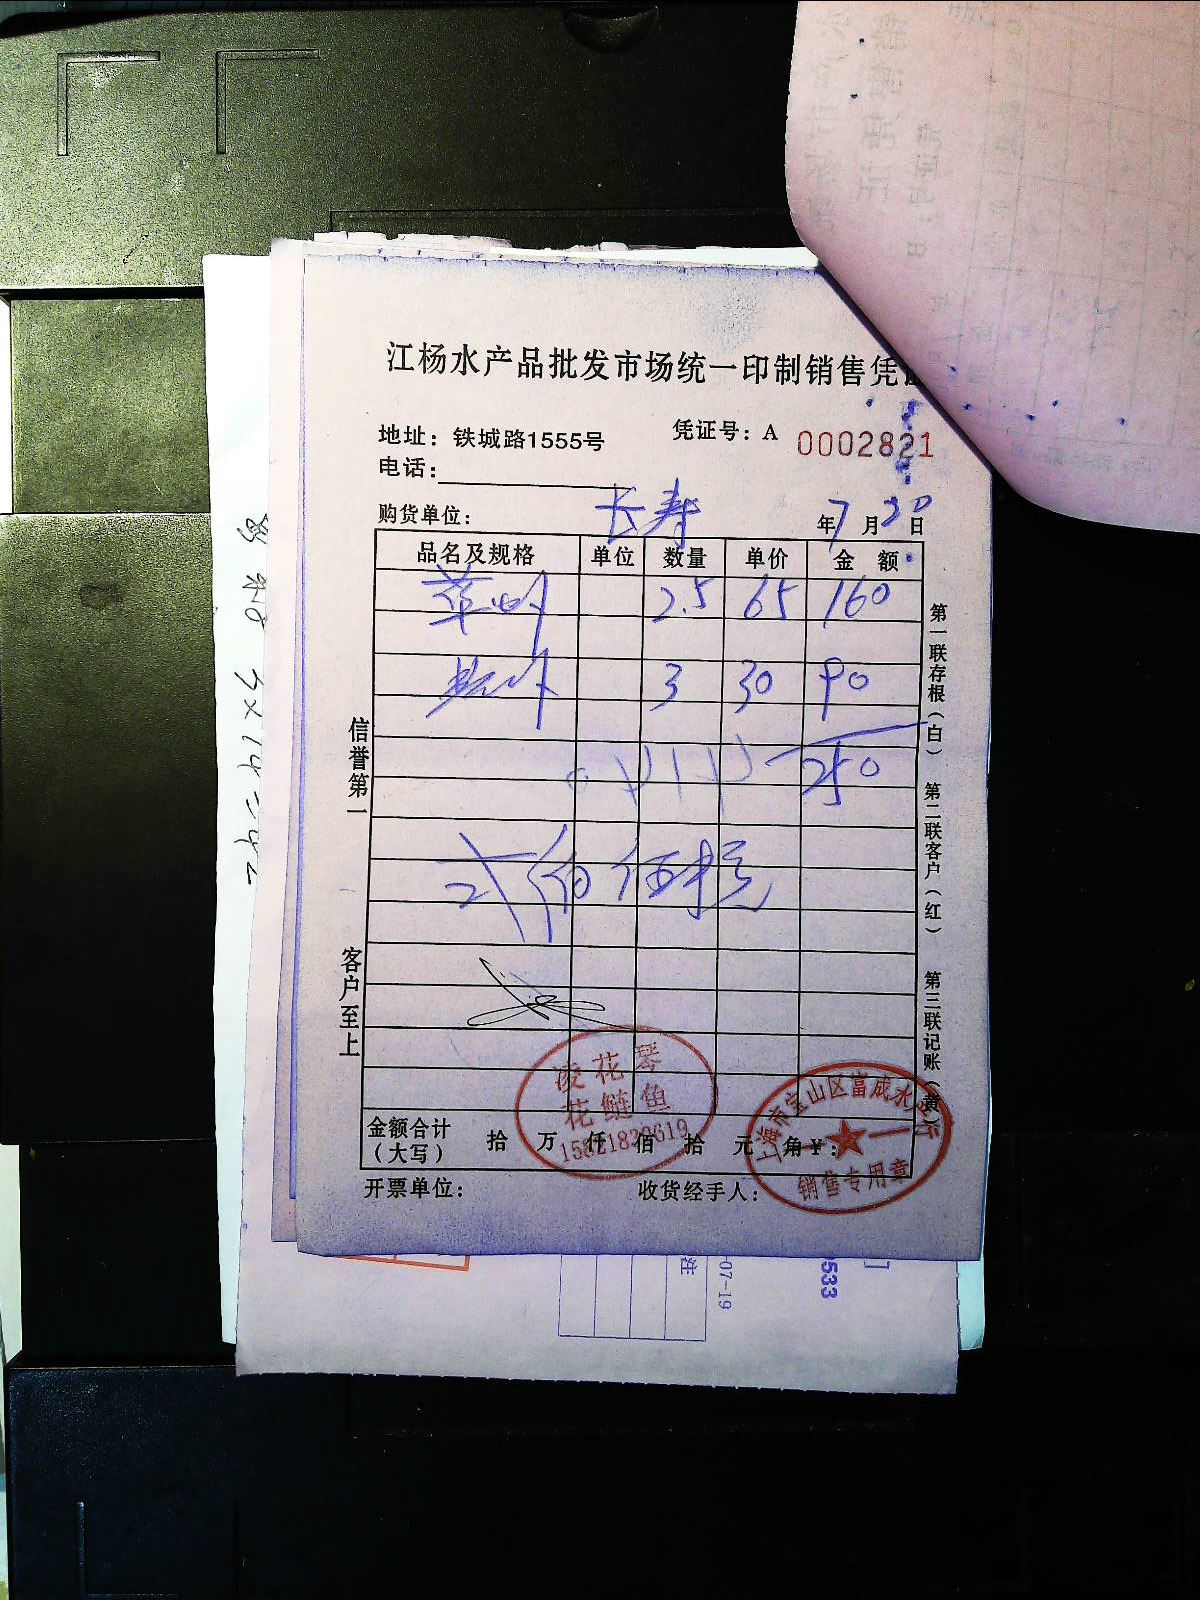 江杨水产品批发市场统一印制销售凭
地址：铁城路1555号
凭证号：A 0002821
电话：
购货单位：长寿
年7月20日
品名及规格 单位 数量 单价 金额
2.5 65 160
3 30 90
250
弍佰伍拾元
信誉第一
客户至上
第一联存根（白） 第二联客户（红） 第三联记账（黄）
凌花琴
花鲢鱼
上海市宝山区富成水产行
销售专用章
金额合计（大写） 拾 万 仟 佰 拾 元 角 ¥：
开票单位： 收货经手人：
3×14=42
07-19
9533
注